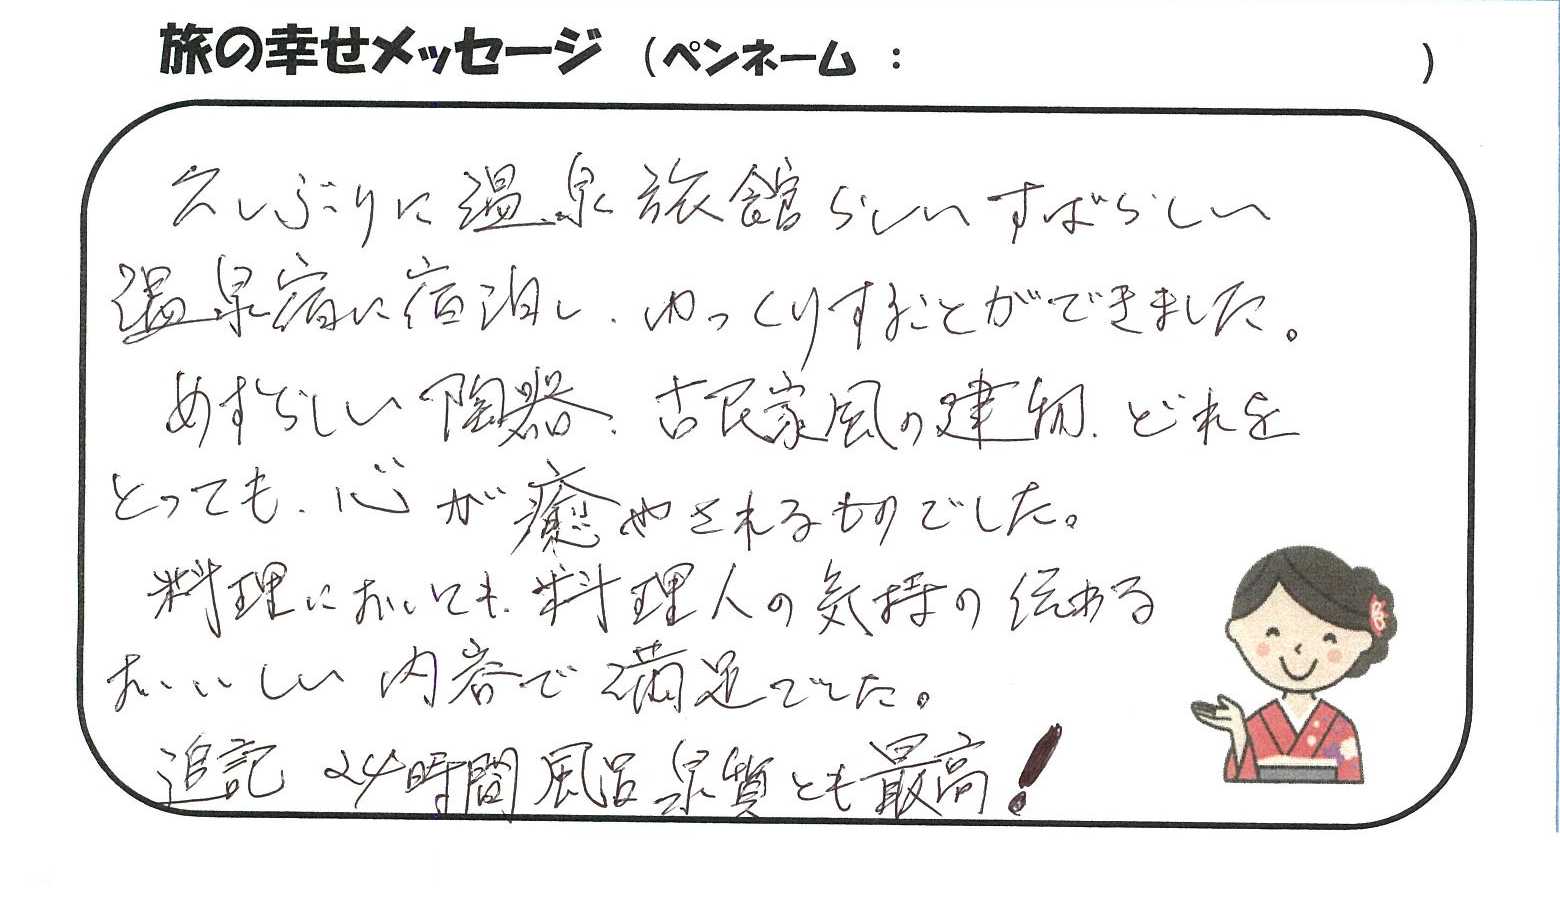 旅の幸せメッセージ （ペンネーム ： ）
久しぶりに温泉旅館らしいすばらしい
温泉宿に宿泊し、ゆっくりすることができました。
めずらしい陶器、古民家風の建物、どれを
とっても、心が癒やされるものでした。
料理においても、料理人の気持の伝わる
おいしい内容で満足でした。
追記 24時間風呂泉質とも最高！